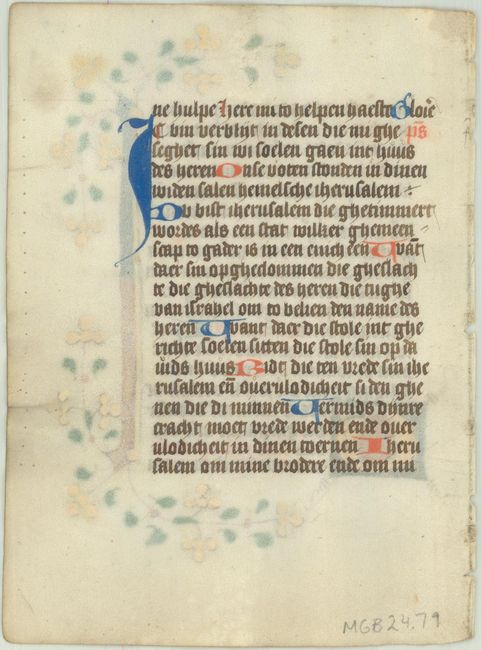 ne hulpe Here mi to helpen haeste Glorie
C vin verblijt in desen die mi ghe ps
seghet sin wi soelen gaen int huus
des heren Onse voten stonden in dinen
widen salen hemelsche iherusalem
Du bist iherusalem die ghetimmert
wordes als een stat wilker ghemeen
scap to gader is in een euich een Want
daer sin opgheclommen die gheslach
te die gheslachte des heren die tughe
van israhel om to belien den name des
heren Want daer die stole int ghe
richte soelen sitten die stole sin op da
uids huus Bidt die ten vrede sin ihe
rusalem en̄ overulodicheit si den ghe
nen die di minnen Uermids dijnre
cracht moet vrede werden ende over
ulodicheit in dinen toernen Iheru
salem om mine brodere ende om mi
MGB 24.79